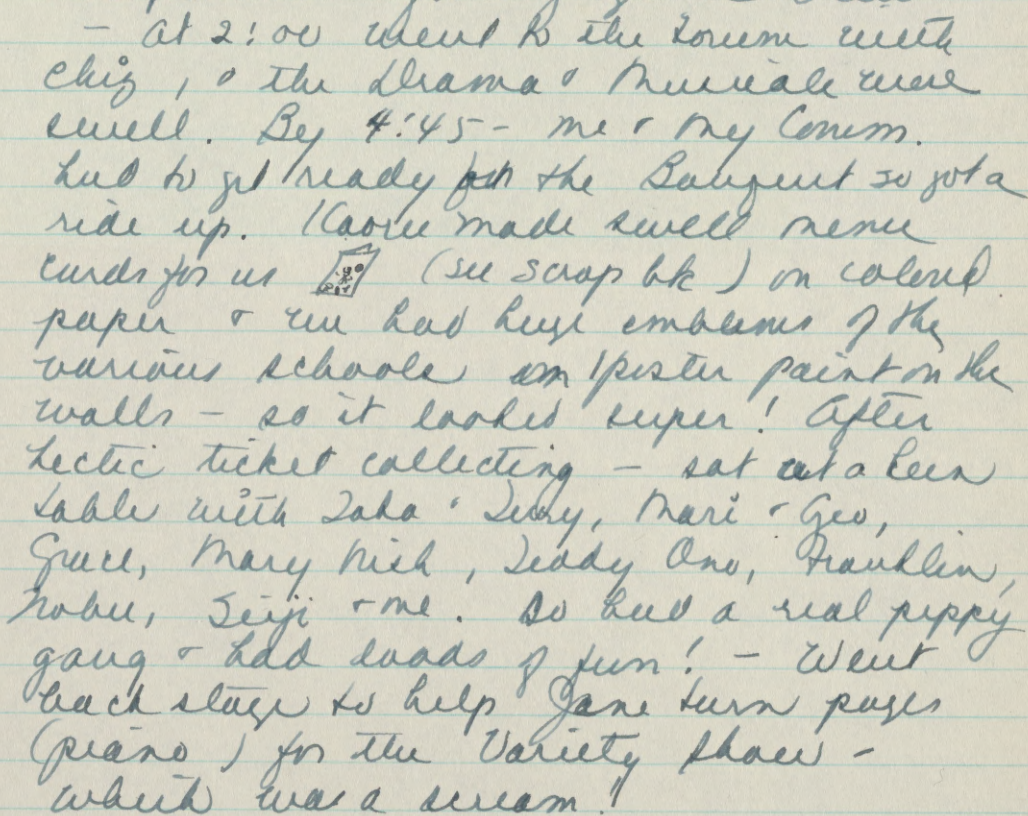 - at 2:00 went to the Forum with
Chiz, & the Drama & Musicale were
swell. By 4:45 - me & my Comm.
had to get ready for the Banquet so got a
ride up. Kaoru made swell menu
cards for us (see scrap bk) on colored
paper & we had huge emblems of the
various schools in poster paint on the
walls - so it looked super! After
hectic ticket collecting - sat at a keen
table with Taka & Terry, Mari & Geo,
Grace, Mary Nish, Teddy Ono, Franklin,
Nobu, Seiji & me. So had a real peppy
gang & had loads of fun! - Went
back stage to help Jane turn pages
(piano) for the Variety Show -
which was a scream!